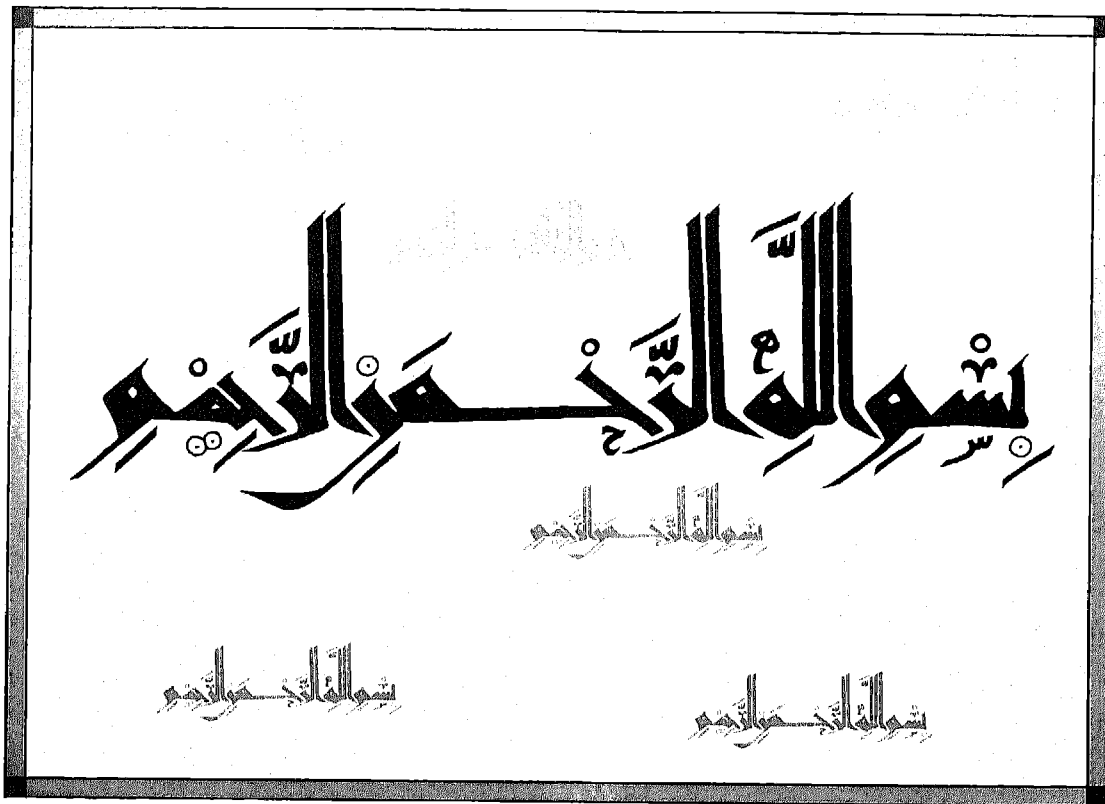 بِسْمِ اللَّهِ الرَّحْمَنِ الرَّحِيمِ
بِسْمِ اللَّهِ الرَّحْمَنِ الرَّحِيمِ
بِسْمِ اللَّهِ الرَّحْمَنِ الرَّحِيمِ
بِسْمِ اللَّهِ الرَّحْمَنِ الرَّحِيمِ